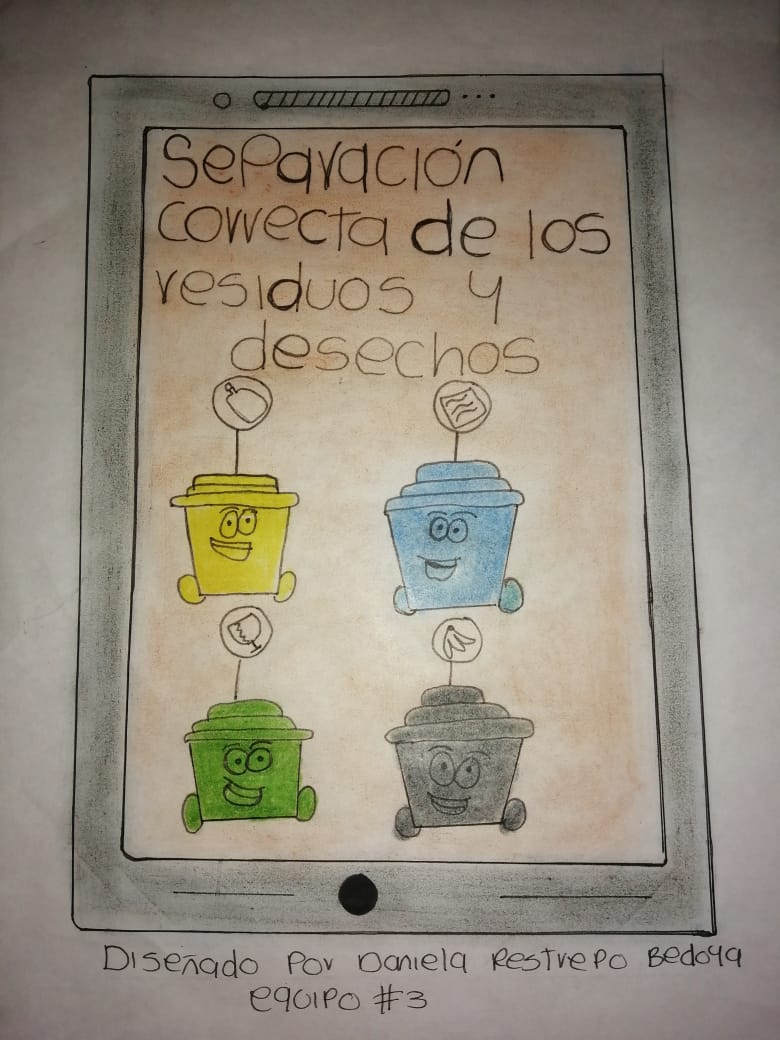 Separación
correcta de los
residuos y
desechos
Diseñado por Daniela Restrepo Bedoya
equipo #3